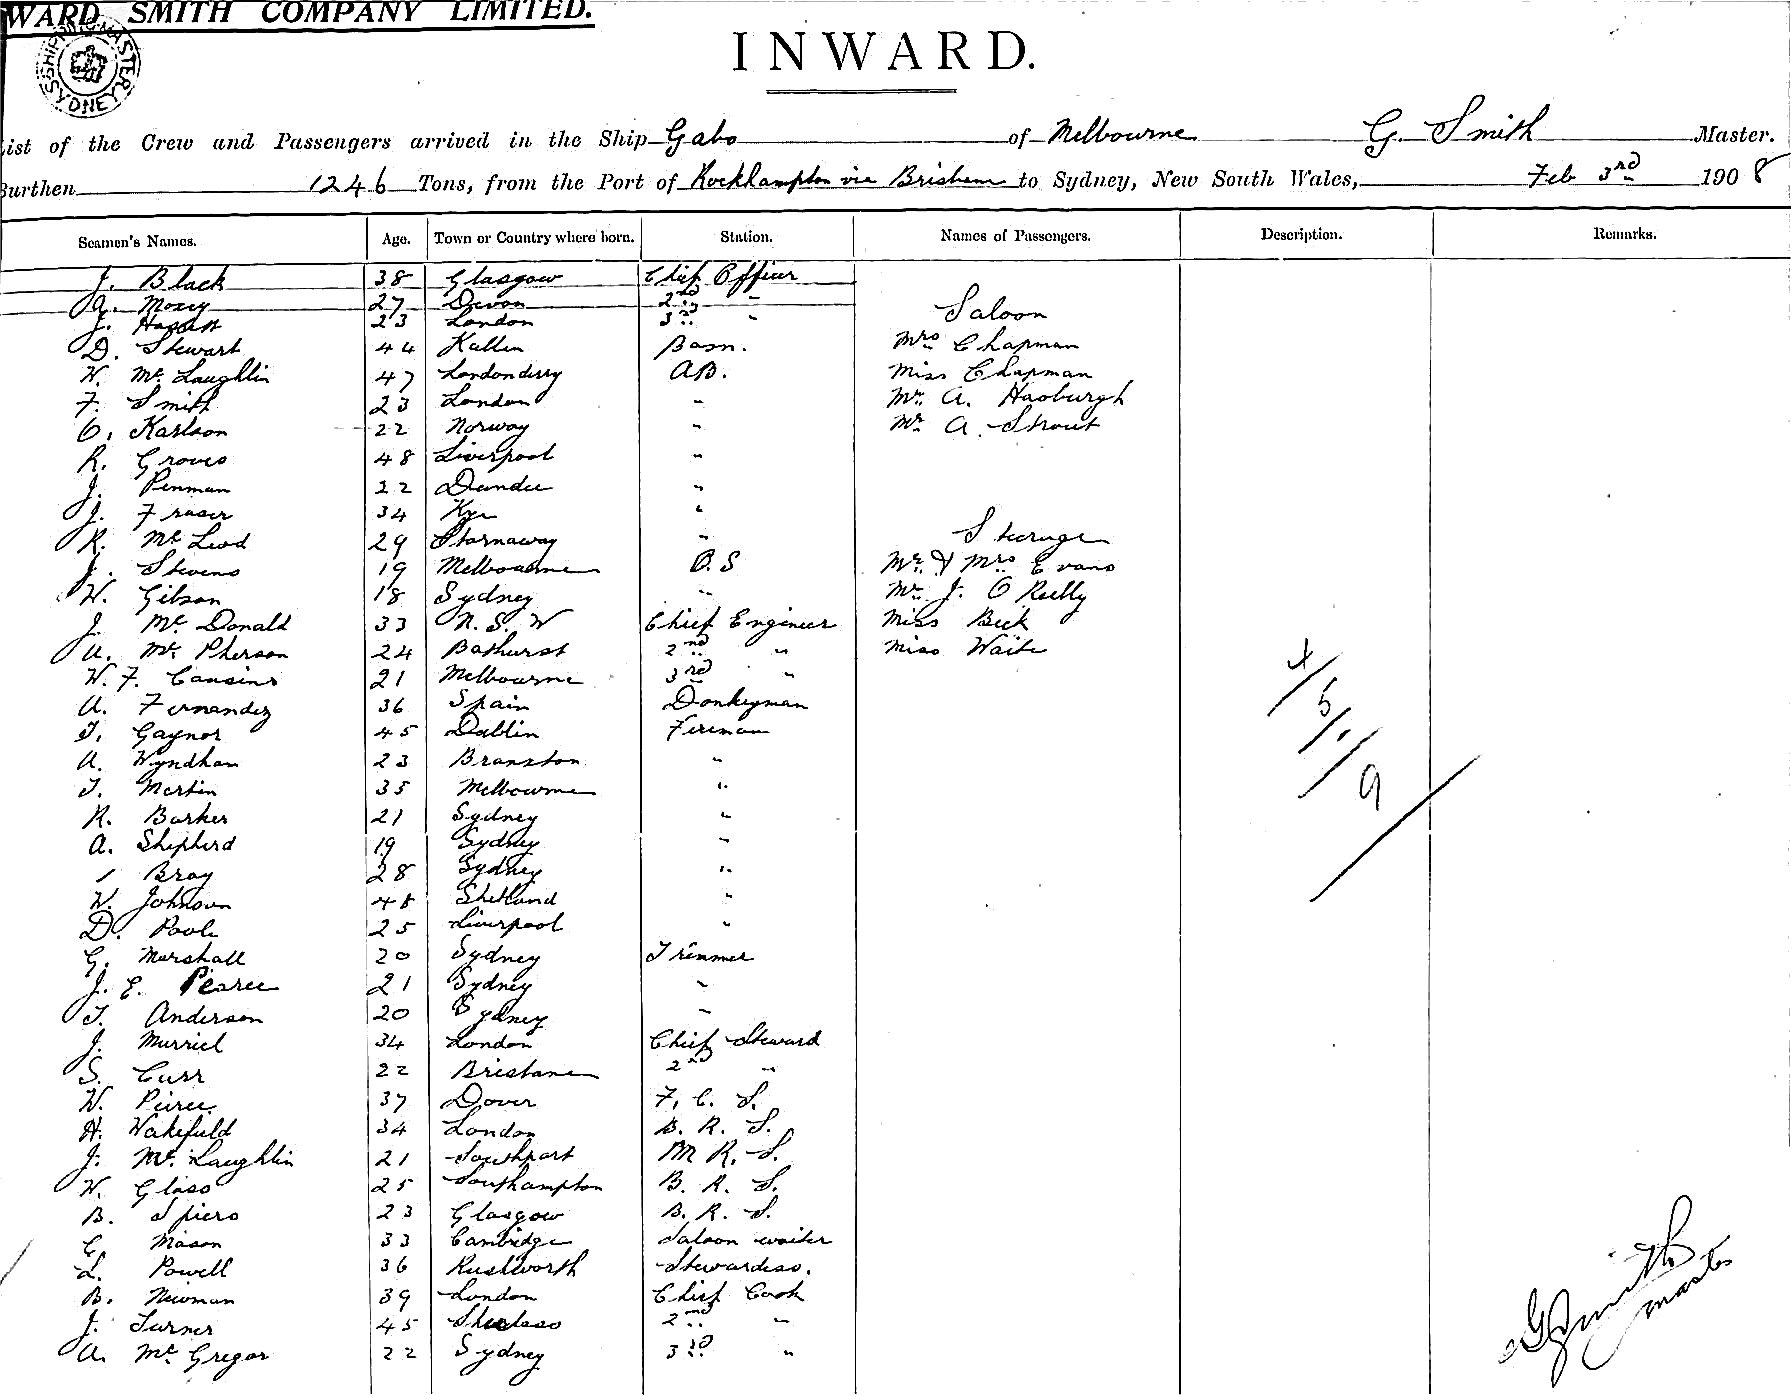 WARD SMITH COMPANY LIMITED.
SHIPPING MASTER SYDNEY
INWARD.
List of the Crew and Passengers arrived in the Ship Gabo of Melbourne G. Smith Master.
Burthen 1246 Tons, from the Port of Rockhampton via Brisbane to Sydney, New South Wales, Feb 3rd 1908
Seamen's Names. Age. Town or Country where born. Station. Names of Passengers. Description. Remarks.
J. Black 38 Glasgow Chief Officer
Moxey 27 Devon 2nd "
J. 23 London 3rd " Saloon
D. Stewart 44 Bosn. Mrs Chapman
W. McLaughlin 47 Londonderry AB. Miss Chapman
F. Smith 23 London " Mr. A. Hasburgh
C. Karlson 22 Norway " Mr A. Strout
R. Groves 48 Liverpool "
J. Penman 22 Dundee "
J. Fraser 34 "
R. McLeod 29 Stornaway " Steerage
J. Stevens 19 Melbourne O.S Mr. & Mrs Evans
W. Gibson 18 Sydney " Mr. J. O Reilly
J. McDonald 33 N.S.W Chief Engineer Miss Bick
A. McPherson 24 Bathurst 2nd " Miss Waite
W. F. Cousins 21 Melbourne 3rd "
A. Fernandez 36 Spain Donkeyman
T. Gaynor 45 Dublin Fireman
A. Wyndham 23 Branxton "
T. Martin 35 Melbourne "
R. Barker 21 Sydney "
A. Shepherd 19 Sydney "
Bray 28 Sydney "
W. Johnson 48 Shetland "
D. Poole 25 Liverpool "
G. Marshall 20 Sydney Trimmer
J. E. Pearce 21 Sydney "
T. Anderson 20 Sydney "
J. Murriel 34 London Chief Steward
S. Curr 22 Brisbane 2nd "
W. Peirce 37 Dover F. C. S.
H. Wakefield 34 London B. R. S.
J. McLaughlin 21 Southport M R. S.
W. Glass 25 Southampton B. R. S.
B. Spiers 23 Glasgow B. R. S.
C. Mason 33 Cambridge Saloon waiter
L. Powell 36 Rushworth Stewardess.
B. Newman 39 London Chief Cook
J. Turner 45 2nd "
A. McGregor 22 Sydney 3rd "
4/
5/
9
G Smith
master